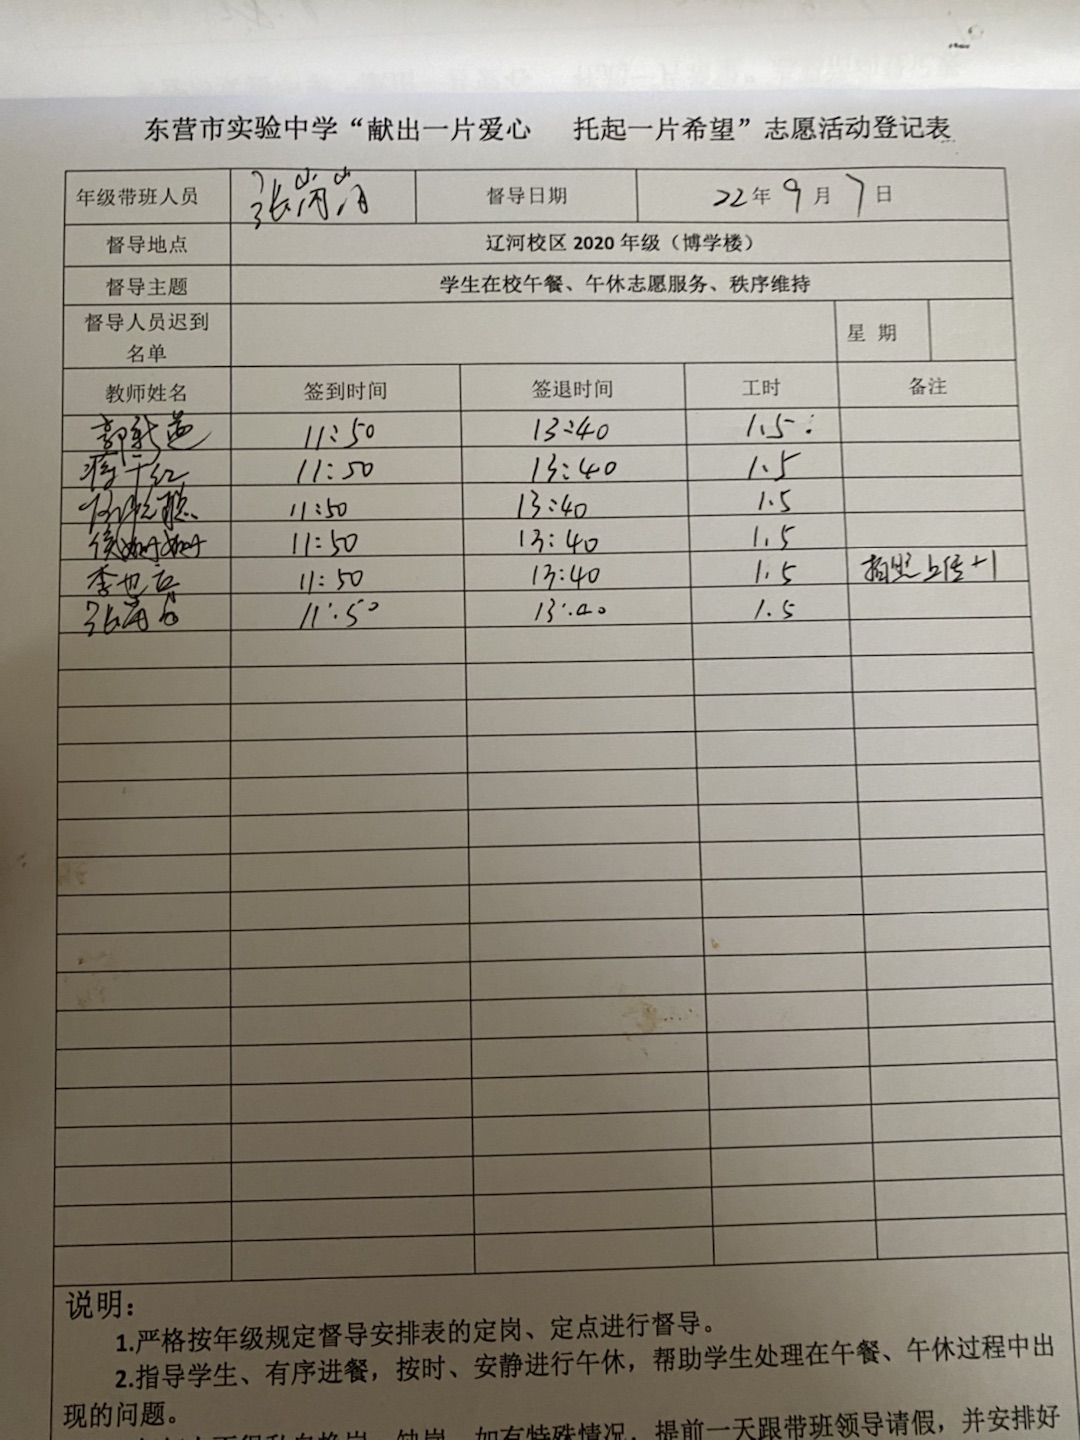 东营市实验中学“献出一片爱心 托起一片希望”志愿活动登记表
年级带班人员 督导日期 22年9月7日
督导地点 辽河校区 2020 年级（博学楼）
督导主题 学生在校午餐、午休志愿服务、秩序维持
督导人员迟到名单 星 期
教师姓名 签到时间 签退时间 工时 备注
11:50 13:40 1.5
11:50 13:40 1.5
11:50 13:40 1.5
侯姗姗 11:50 13:40 1.5
11:50 13:40 1.5 拍照上传+1
11:50 13:40 1.5
说明：
1.严格按年级规定督导安排表的定岗、定点进行督导。
2.指导学生、有序进餐，按时、安静进行午休，帮助学生处理在午餐、午休过程中出
现的问题。
缺岗，如有特殊情况，提前一天跟带班领导请假，并安排好